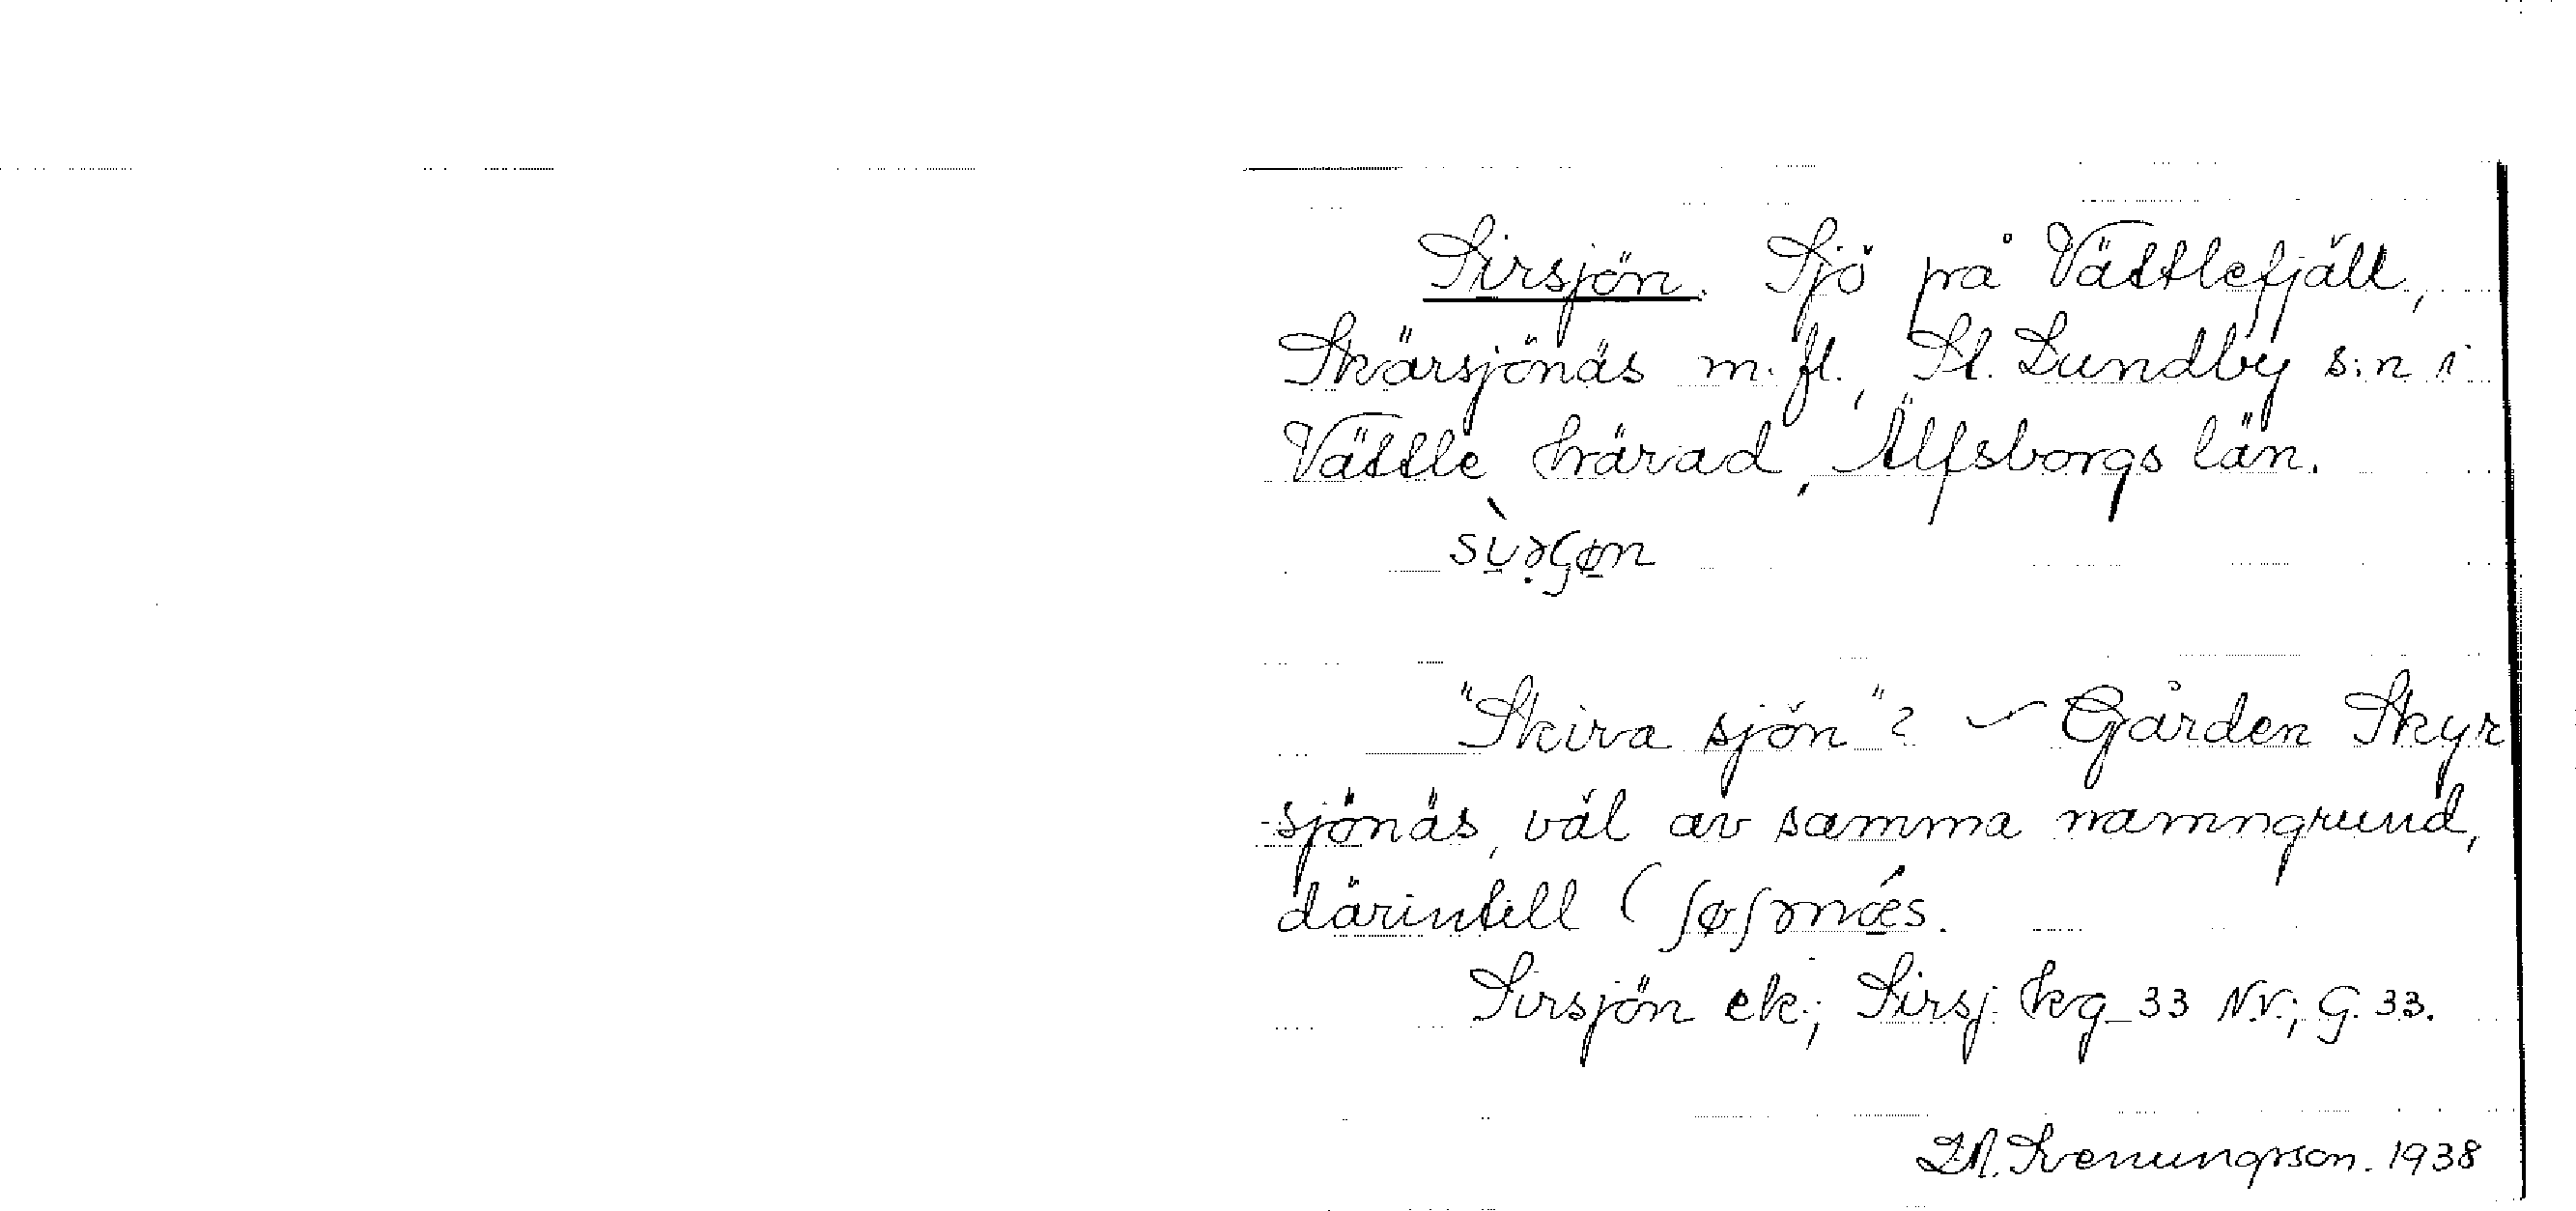 Sirsjön. Sjö på Vättlefjäll,
Skärsjönäs m. fl., St. Lundby s:n i
Vättle härad, Älfsborgs län.
"Skira sjön"? ~ Gården Skyr
sjönäs, väl av samma namngrund,
därintill (
Sirsjön ek; Sirsj. hkg 33 N.V.; G. 33.
1938